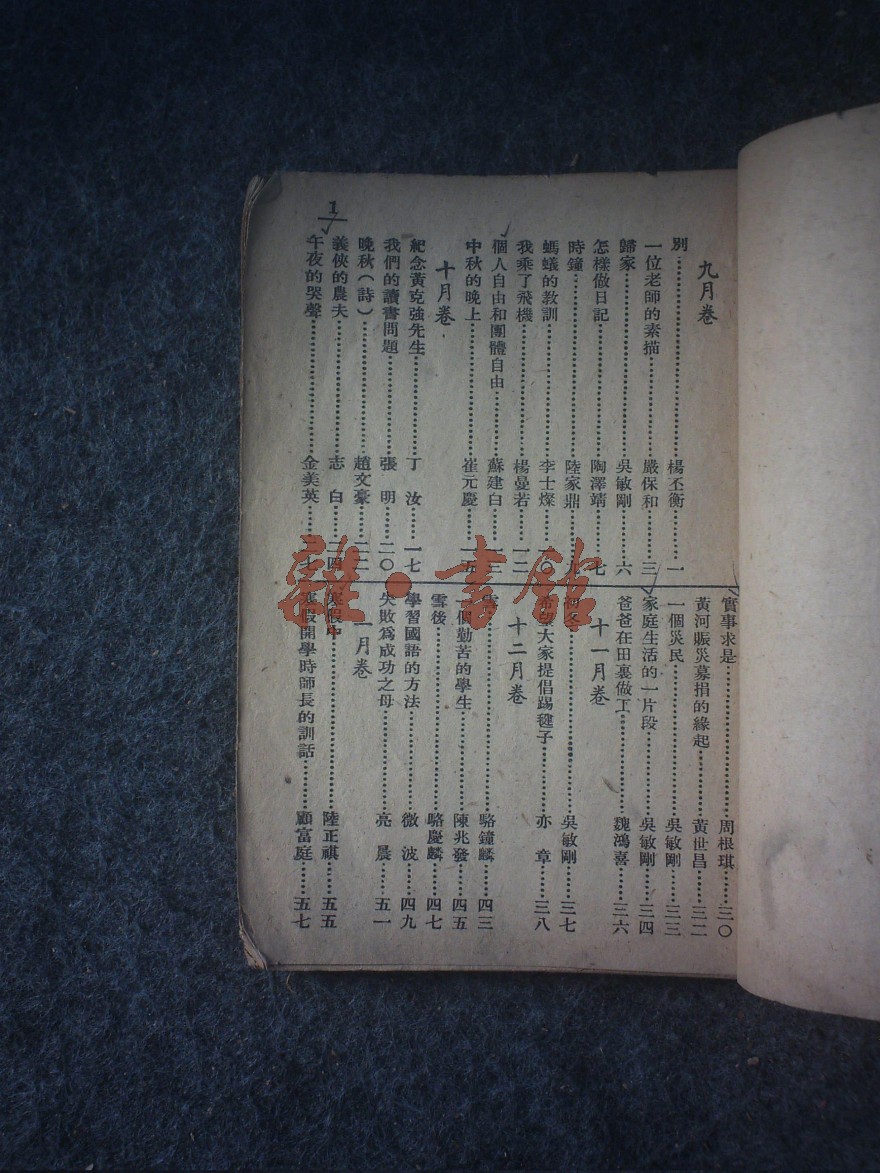 1
九月卷
別……楊丕衡……一
一位老師的素描……嚴保和……三
歸家……吳敏剛……六
怎樣做日記……陶澤靖……七
時鐘……陸家鼎……九
螞蟻的教訓……李士燦……一〇
我乘了飛機……楊曼若……一二
個人自由和團體自由……蘇建白……一三
中秋的晚上……崔元慶……一五
十月卷
紀念黃克強先生……丁汝……一七
我們的讀書問題……張明……二〇
晚秋(詩)……趙文豪……二二
義俠的農夫……志白……二四
午夜的哭聲……金美英……二七
實事求是……周根琪……三〇
黃河賑災募捐的緣起……黃世昌……三二
一個災民……吳敏剛……三三
家庭生活的一片段……吳敏剛……三四
爸爸在田裏做工……魏鴻喜……三六
十一月卷
初冬……吳敏剛……三七
希望大家提倡踢毽子……亦章……三八
十二月卷
……駱鐘麟……四三
一個勤苦的學生……陳兆發……四五
雪後……駱慶麟……四七
學習國語的方法……微波……四九
失敗為成功之母……亮晨……五一
一月卷
寒假中……陸正祺……五五
寒假開學時師長的訓話……顧富庭……五七
雜·書館